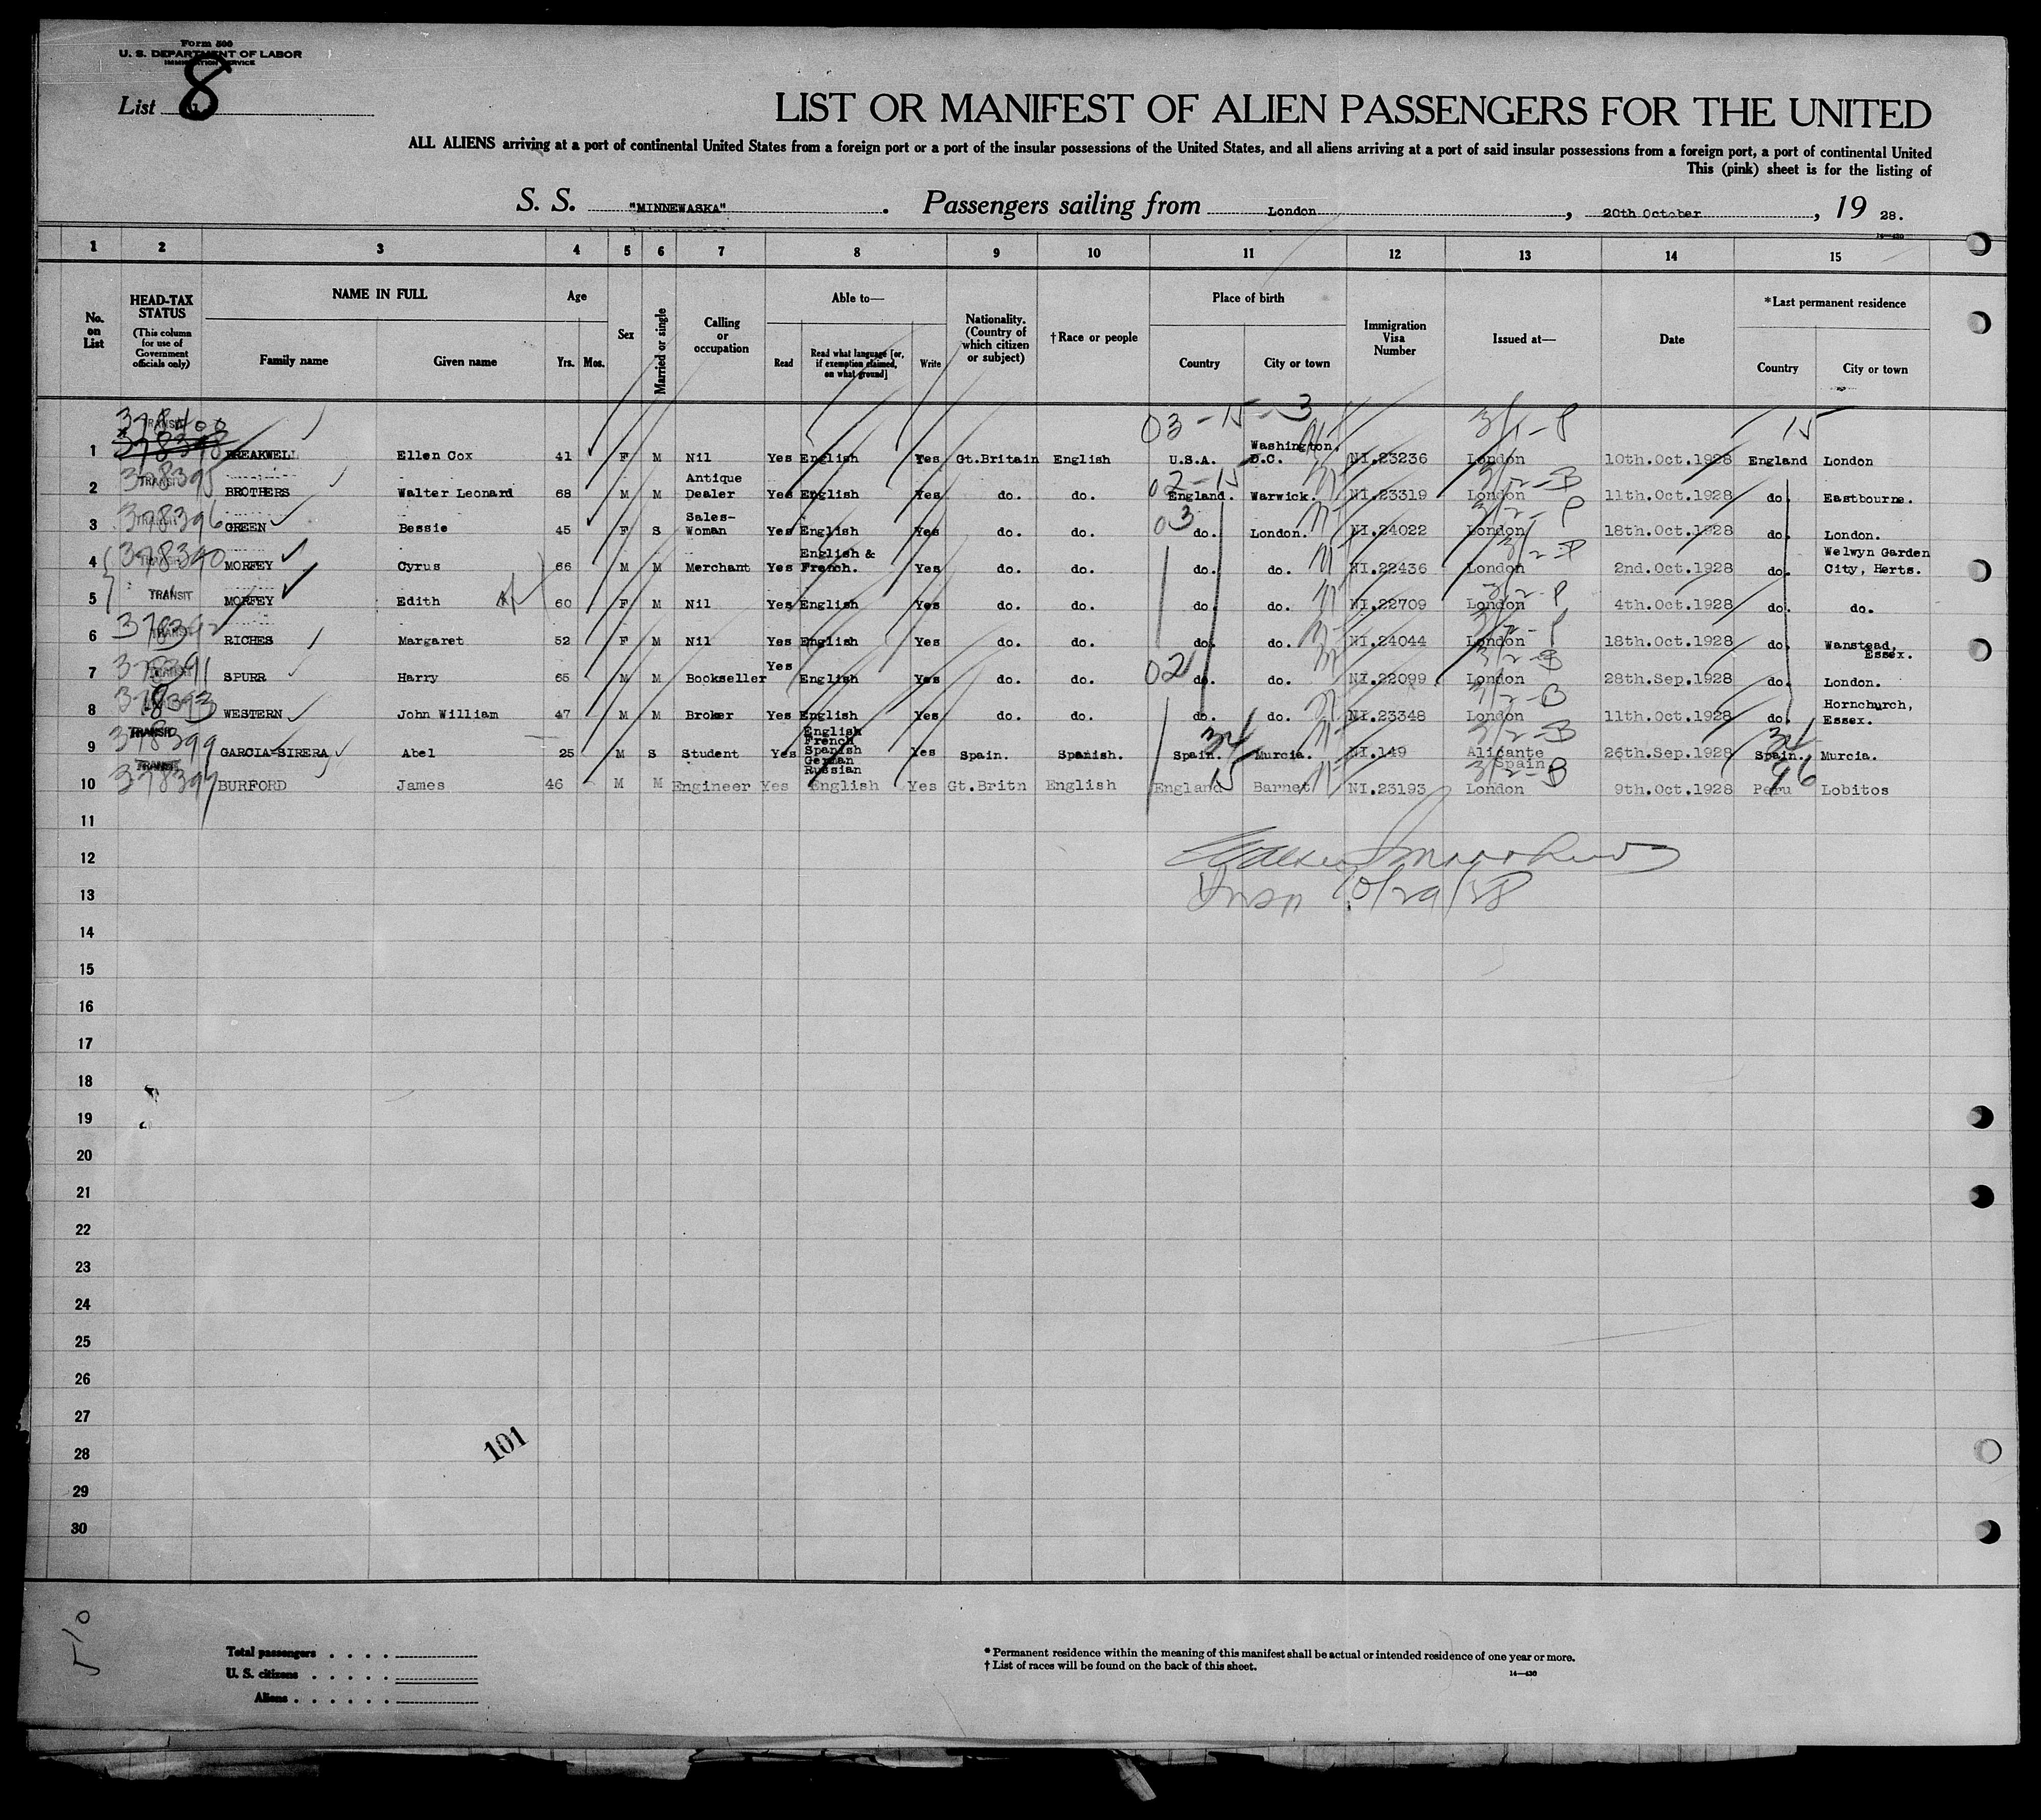 Form 500
U. S. DEPARTMENT OF LABOR
IMMIGRATION SERVICE
List 8
LIST OR MANIFEST OF ALIEN PASSENGERS FOR THE UNITED
ALL ALIENS arriving at a port of continental United States from a foreign port or a port of the insular possessions of the United States, and all aliens arriving at a port of said insular possessions from a foreign port, a port of continental United
This (pink) sheet is for the listing of
S. S. "MINNEWASKA". Passengers sailing from London, 20th October, 19 28.
14—430
1 2 3 4 5 6 7 8 9 10 11 12 13 14 15
No. on List
HEAD-TAX STATUS (This column for use of Government officials only)
NAME IN FULL
Family name Given name
Age
Yrs. Mos.
Sex
Married or single
Calling or occupation
Able to—
Read
Read what language [or, if exemption claimed, on what ground]
Write
Nationality. (Country of which citizen or subject)
†Race or people
Place of birth
Country City or town
Immigration Visa Number
Issued at—
Date
*Last permanent residence
Country City or town
03-15-3 3/1-P 15
1 TRANSIT 378400 378398 BREAKWELL Ellen Cox 41 F M Nil Yes English Yes Gt.Britain English U.S.A. Washington. D.C. NI.23236 London 10th.Oct.1928 England London
02-15 3/2-B
2 TRANSIT 378395 BROTHERS Walter Leonard 68 M M Antique Dealer Yes English Yes do. do. England. Warwick. NI.23319 London 11th.Oct.1928 do. Eastbourne.
03 3/2-P
3 TRANSIT 378396 GREEN Bessie 45 F S Sales-Woman Yes English Yes do. do. do. London. NI.24022 London 18th.Oct.1928 do. London.
3/2-P
4 TRANSIT 378390 MORFEY Cyrus 66 M M Merchant Yes English & French. Yes do. do. do. do. NI.22436 London 2nd.Oct.1928 do. Welwyn Garden City, Herts.
3/2-P
5 TRANSIT MORFEY Edith 60 F M Nil Yes English Yes do. do. do. do. NI.22709 London 4th.Oct.1928 do. do.
6 TRANSIT 378392 RICHES Margaret 52 F M Nil Yes English Yes do. do. do. do. NI.24044 London 18th.Oct.1928 do. Wanstead, Essex.
02 3/2-B
7 TRANSIT 378391 SPURR Harry 65 M M Bookseller Yes English Yes do. do. do. do. NI.22099 London 28th.Sep.1928 do. London.
3/2-B
8 378393 WESTERN John William 47 M M Broker Yes English Yes do. do. do. do. NI.23348 London 11th.Oct.1928 do. Hornchurch, Essex.
34 3/2-B 34
9 TRANSIT 378399 GARCIA-SIRERA Abel 25 M S Student Yes English French Spanish German Russian Yes Spain. Spanish. Spain. Murcia. NI.149 Alicante Spain 26th.Sep.1928 Spain. Murcia.
15 3/2-B 96
10 TRANSIT 378397 BURFORD James 46 M M Engineer Yes English Yes Gt.Britn English England Barnet NI.23193 London 9th.Oct.1928 Peru Lobitos
11
12
13 Insp 10/29/28
14
15
16
17
18
19
20
21
22
23
24
25
26
27
28 101
29
30
5/0
Total passengers . . . .
U. S. citizens . . . . .
Aliens . . . . . .
* Permanent residence within the meaning of this manifest shall be actual or intended residence of one year or more.
† List of races will be found on the back of this sheet.
14—430